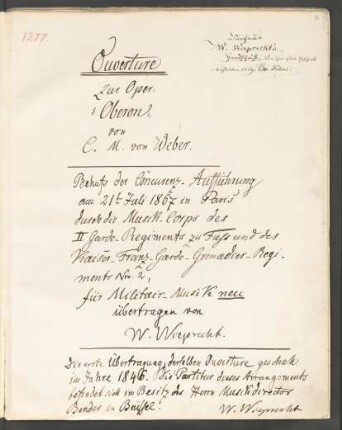 1277.
W. Wieprecht's
Ouverture
zur Oper:
"Oberon"
von
C. M. von Weber.
Behufs der Concurenz-Aufführung
am 21t Juli 1867 in Paris
durch die Musik-Corps des
II Garde-Regiments zu Fuss und des
Kaiser-Franz-Garde-Grenadier-Regi-
ments Nr. 2,
für Militair-Musik neu
übertragen von
W. Wieprecht.
Die erste Übertragung derselben Ouverture geschah
im Jahre 1846. Die Partitur dieses Arrangements
befindet sich im Besitz des Herrn Musikdirector
Bender in Brüssel.
W. Wieprecht